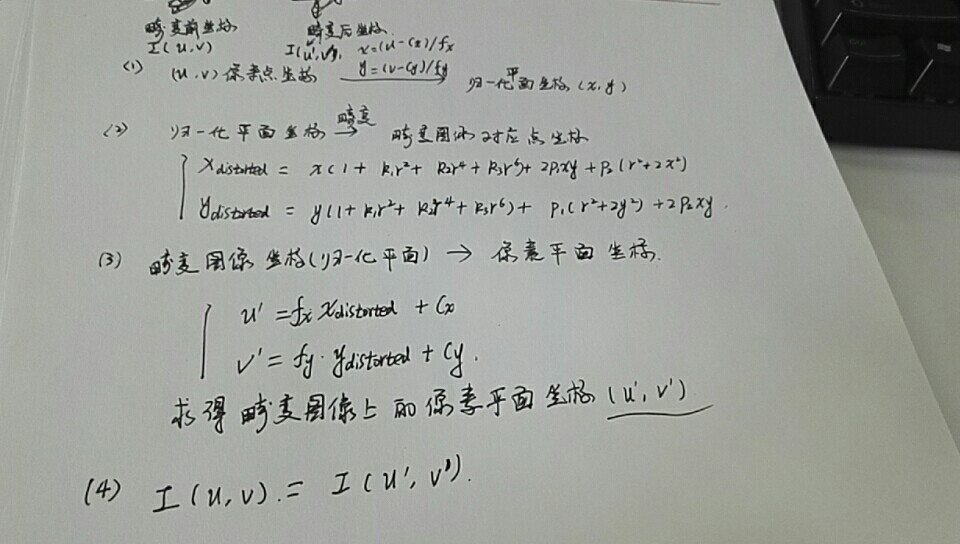 畸变前坐标 畸变后坐标
I(u,v) I(u',v'), x=(u-cx)/fx
(1) (u,v)像素点坐标 y=(v-cy)/fy → 归一化平面坐标(x,y)
(2) 归一化平面坐标 畸变→ 畸变图像对应点坐标
Xdistorted = x(1+ k₁r²+ k₂r⁴+k₃r⁶)+2p₁xy+p₂(r²+2x²)
ydistorted = y(1+k₁r²+k₂r⁴+k₃r⁶)+ p₁(r²+2y²)+2p₂xy.
(3) 畸变图像坐标(归一化平面) → 像素平面坐标.
u' =fx Xdistorted + Cx
v' = fy·ydistorted + Cy.
求得畸变图像上的像素平面坐标(u',v')
(4) I(u,v).= I(u',v').